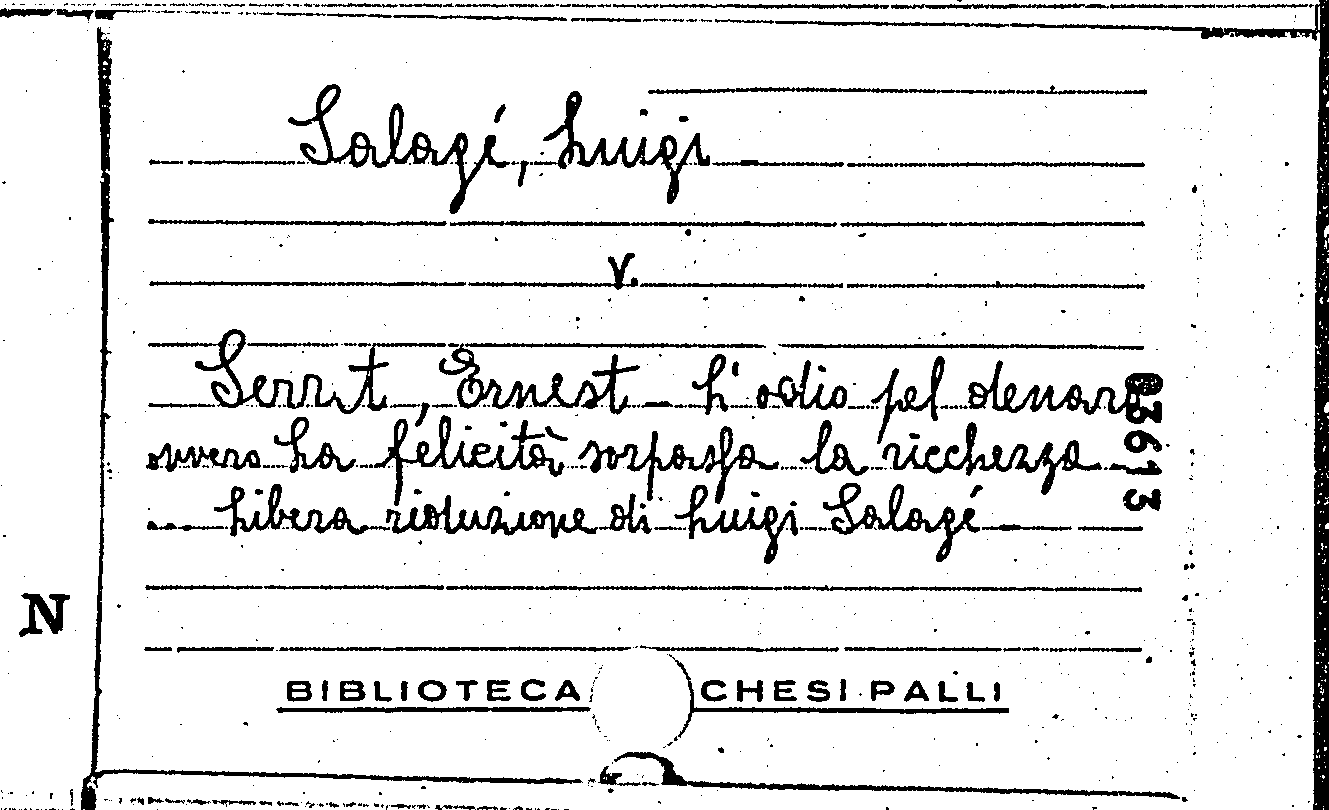 Salagé, Luigi
v.
Serrit, Ernest - L'odio pel denaro
ovvero La felicità sorpassa la ricchezza -
... Libera riduzione di Luigi Salagé -
03613
N
BIBLIOTECA CHESI PALLI